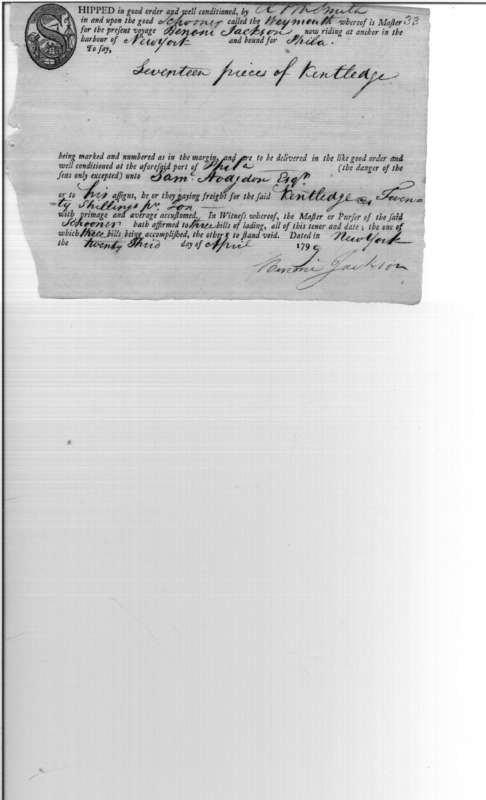 SHIPPED in good order and well conditioned, by
in and upon the good Schooner called the Weymouth whereof is Master 33
for the present voyage Benoni Jackson now riding at anchor in the
harbour of New York and bound for Phila.
To say,
Seventeen pieces of Kentledge
being marked and numbered as in the margin, and are to be delivered in the like good order and
well conditioned at the aforesaid port of Phila (the danger of the
seas only excepted) unto Saml. Hodgdon Esqr.
or to his assigns, he or they paying freight for the said Kentledge Twen-
ty Shillings pr. Ton
with primage and average accustomed. In Witness whereof, the Master or Purser of the said
Schooner hath affirmed to three bills of lading, all of this tenor and date; the one of
which three bills being accomplished, the others to stand void. Dated in New York
the twenty third day of April 1799
Benoni Jackson